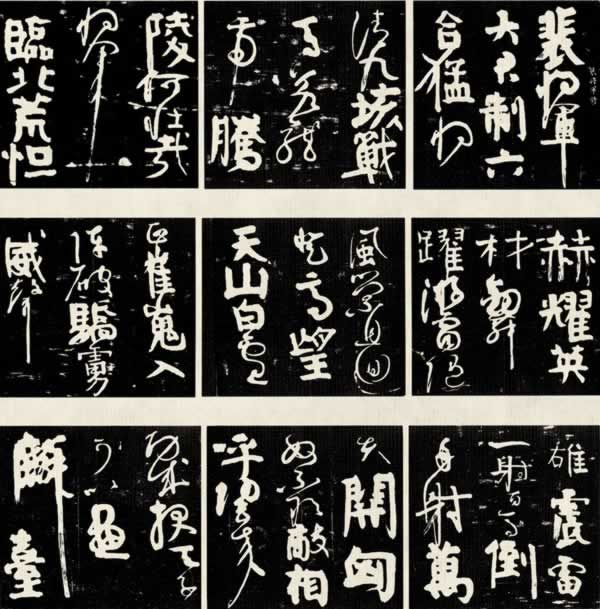 裴將軍
大君制六
合猛將
清九垓戰
馬若龍
虎騰
陵何壯哉
將軍
臨北荒怛
赫耀英
材劍舞
躍游電隨
風縈且迴
登高望
天山白雪
正崔嵬入
陣破驕虜
威聲
雄震雷
一射百馬倒
再射萬
夫開匈
奴不敢敵相
呼歸去來
功成報天子
可以畫
麟臺